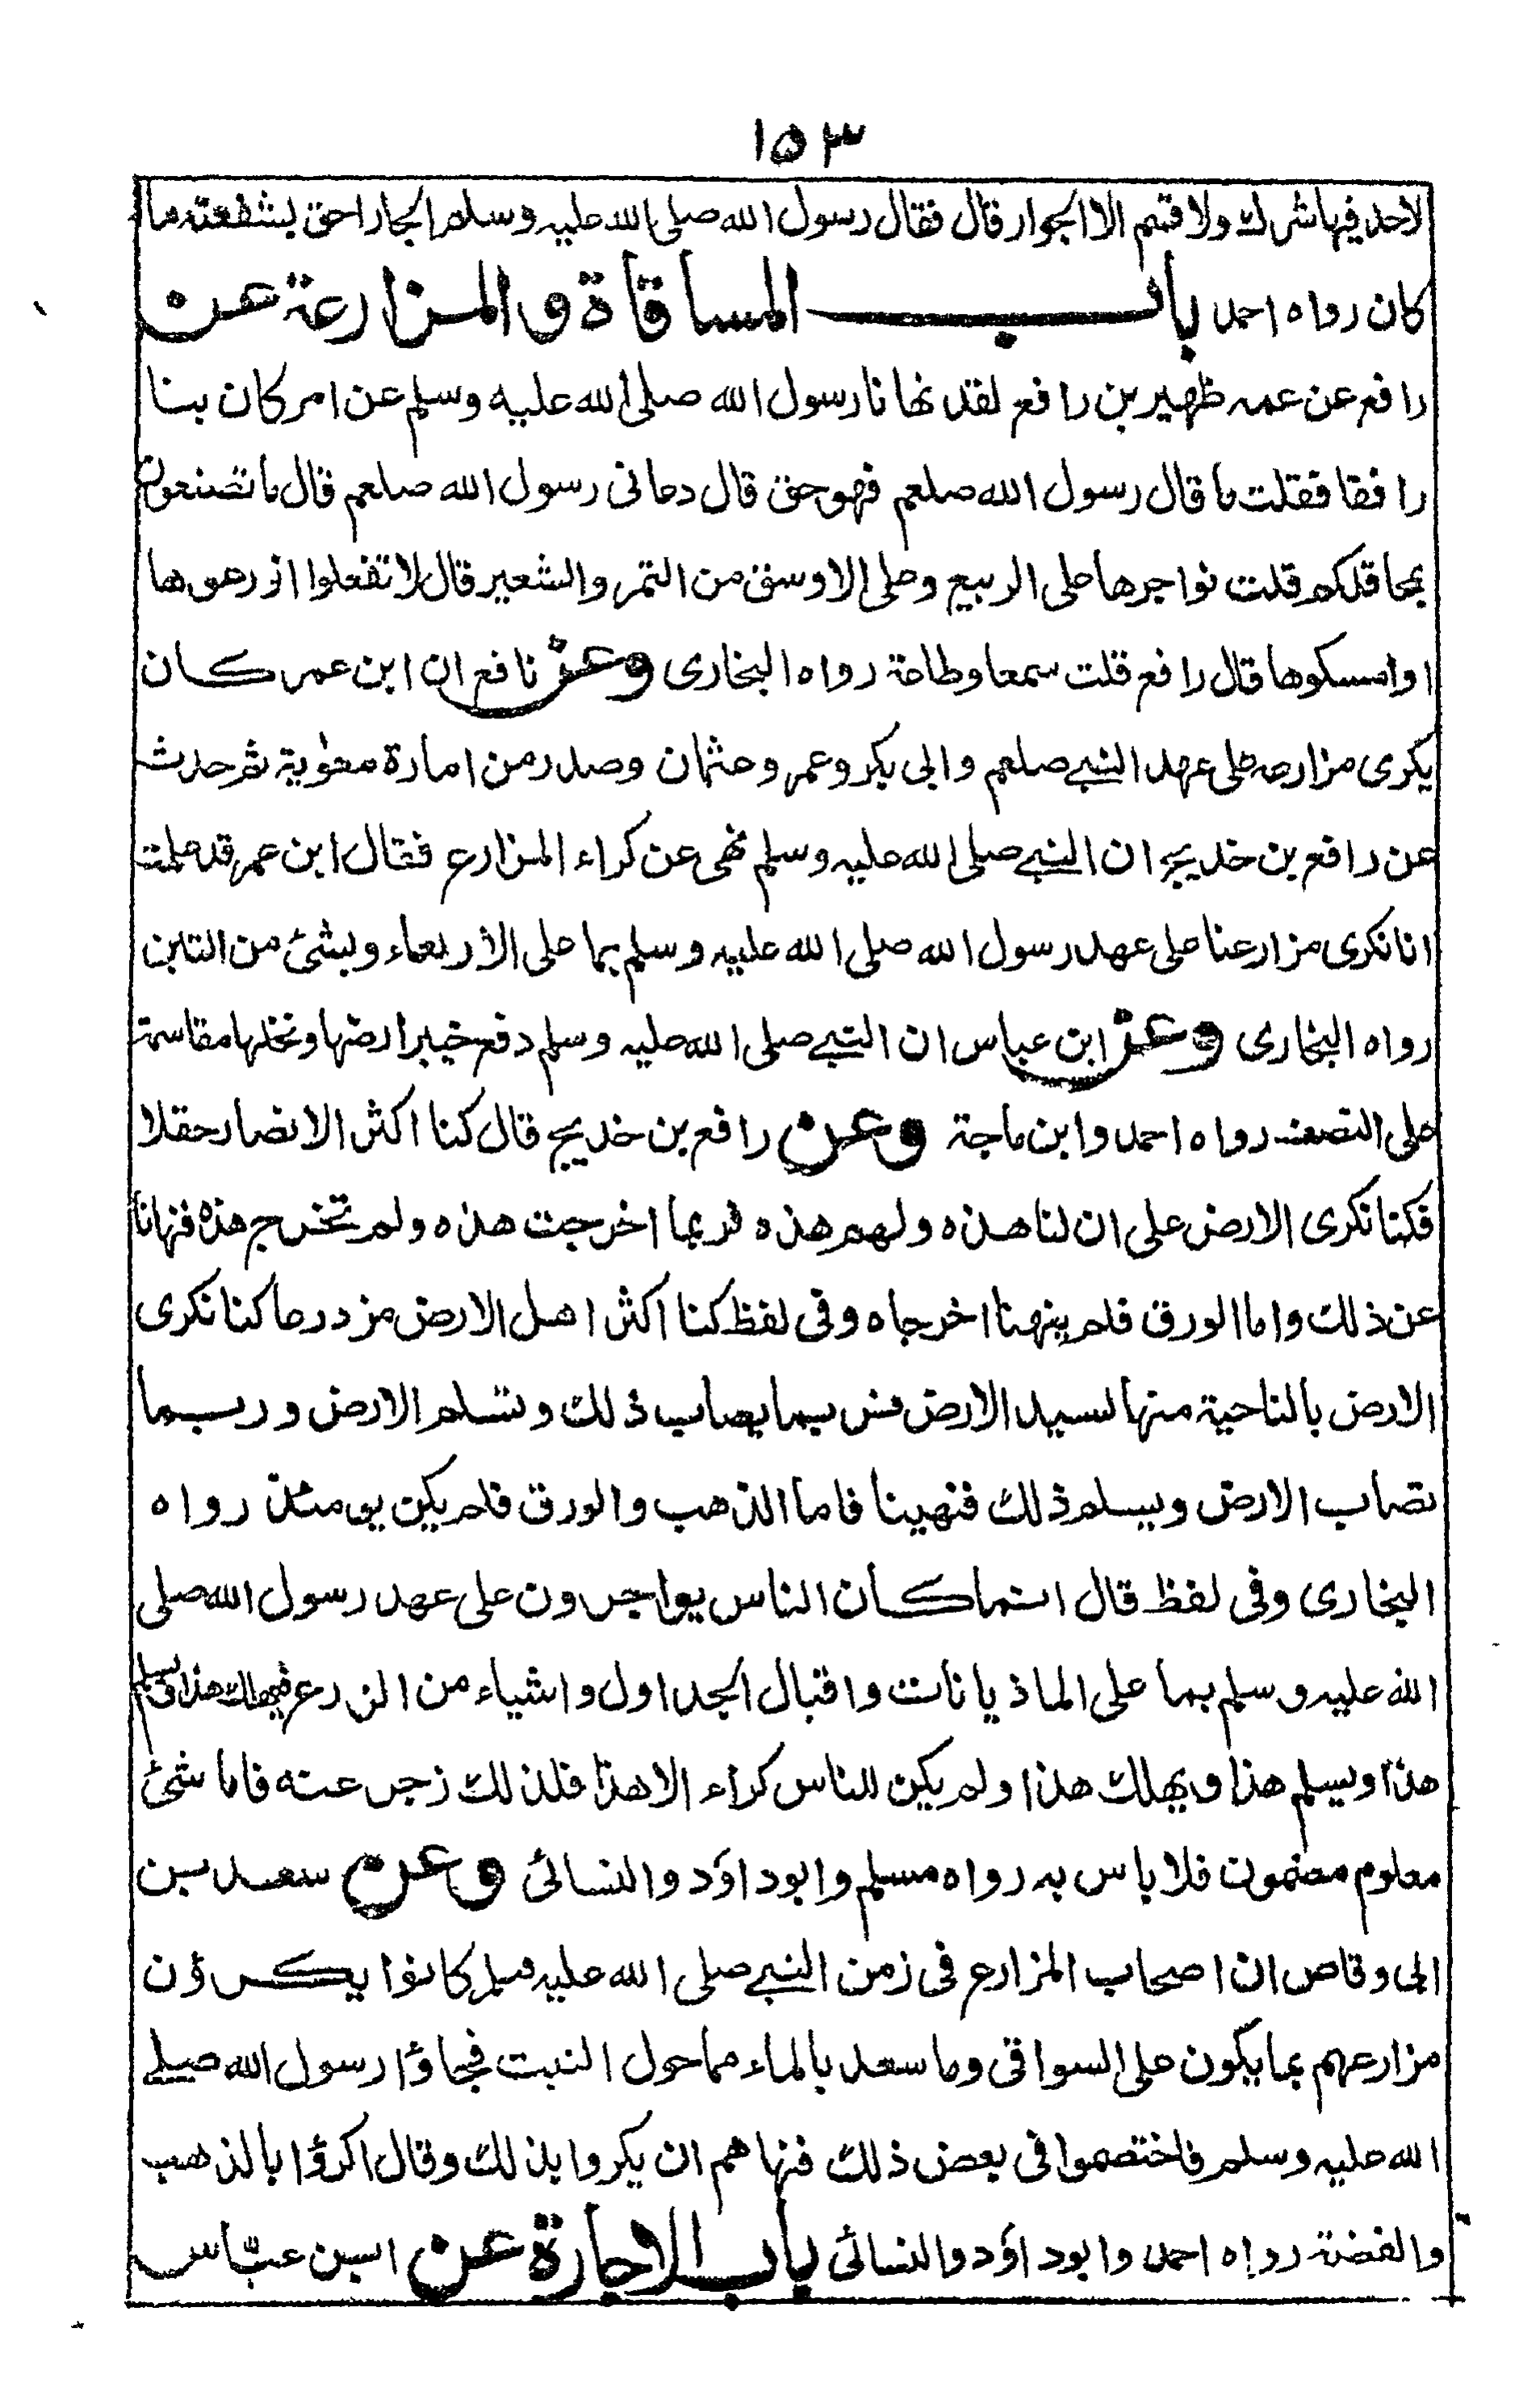 ١٥٣
لاحد فيها شرك ولا قسم الا الجوار قال فقال رسول الله صلى الله عليه وسلم الجار احق بشفعته ما
كان رواه احمد باب المساقاة والمزارعة عن
رافع عن عمه ظهير بن رافع لقد نهانا رسول الله صلى الله عليه وسلم عن امر كان بنا
رافقا فقلت ما قال رسول الله صلعم فهو حق قال دعانى رسول الله صلعم قال ما تصنعون
بمحاقلكم قلت نواجرها على الربيع وعلى الاوسق من التمر والشعير قال لا تفعلوا ازرعوها
اوامسكوها قال رافع قلت سمعا وطاعة رواه البخارى وعن نافع ان ابن عمر كان
يكرى مزارعه على عهد النبي صلعم وابى بكر وعمر وعثمان وصدر من امارة معوية ثم حدث
عن رافع بن خديج ان النبي صلى الله عليه وسلم نهى عن كراء المزارع فقال ابن عمر قد علمت
انا نكرى مزارعنا على عهد رسول الله صلى الله عليه وسلم بما على الاربعاء وبشئ من التبن
رواه البخارى وعن ابن عباس ان النبي صلى الله عليه وسلم دفع خيبر ارضها ونخلها مقاسمة
على النصف رواه احمد وابن ماجة وعن رافع بن خديج قال كنا اكثر الانصار حقلا
فكنا نكرى الارض على ان لنا هذه ولهم هذه فربما اخرجت هذه ولم تخرج هذه فنهانا
عن ذلك واما الورق فلم ينهنا اخرجاه وفى لفظ كنا اكثر اهل الارض مزدرعا كنا نكرى
الارض بالناحية منها لسيد الارض فربما يصاب ذلك وتسلم الارض وربما
تصاب الارض ويسلم ذلك فنهينا فاما الذهب والورق فلم يكن يومئذ رواه
البخارى وفى لفظ قال انما كان الناس يواجرون على عهد رسول الله صلى
الله عليه وسلم بما على الماذيانات واقبال الجداول واشياء من الزرع فيهلك هذا ويسلم
هذا ويسلم هذا ويهلك هذا ولم يكن للناس كراء الا هذا فلذلك زجر عنه فاما شئ
معلوم مضمون فلا باس به رواه مسلم وابوداؤد والنسائى وعن سعد بن
ابى وقاص ان اصحاب المزارع فى زمن النبي صلى الله عليه وسلم كانوا يكرؤن
مزارعهم بما يكون على السواقى وما سعد بالماء مما حول النبت فجاؤا رسول الله صلى
الله عليه وسلم فاختصموا فى بعض ذلك فنهاهم ان يكروا بذلك وقال اكرؤا بالذهب
والفضة رواه احمد وابوداؤد والنسائى باب الاجارة عن ابن عباس